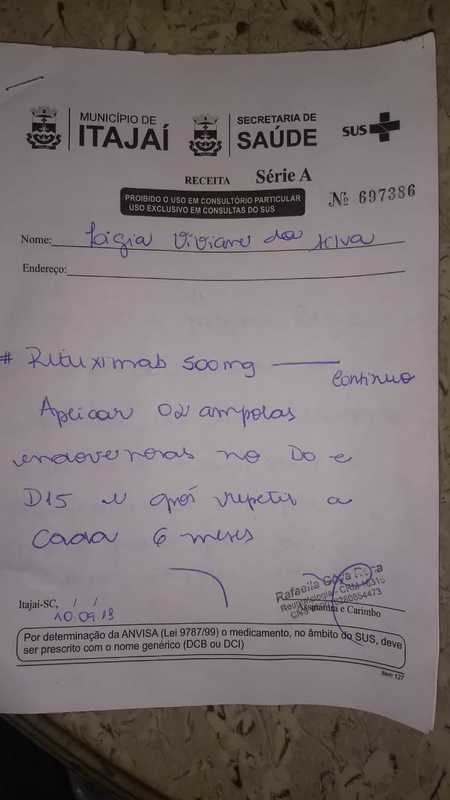 MUNICÍPIO DE
ITAJAÍ
SECRETARIA DE
SAÚDE
SUS
RECEITA Série A
PROIBIDO O USO EM CONSULTÓRIO PARTICULAR
USO EXCLUSIVO EM CONSULTAS DO SUS
Nº 697386
Nome: Ligia Viviane da Silva
Endereço:
# Rituximab 500mg — Contínuo
Aplicar 02 ampolas
endovenosas no D0 e
D15 e após repetir a
cada 6 meses
Rafaella
Reumatologia - CRM 16315
Itajaí-SC, / /
10.09.19
Assinatura e Carimbo
Por determinação da ANVISA (Lei 9787/99) o medicamento, no âmbito do SUS, deve
ser prescrito com o nome genérico (DCB ou DCI)
Item 127